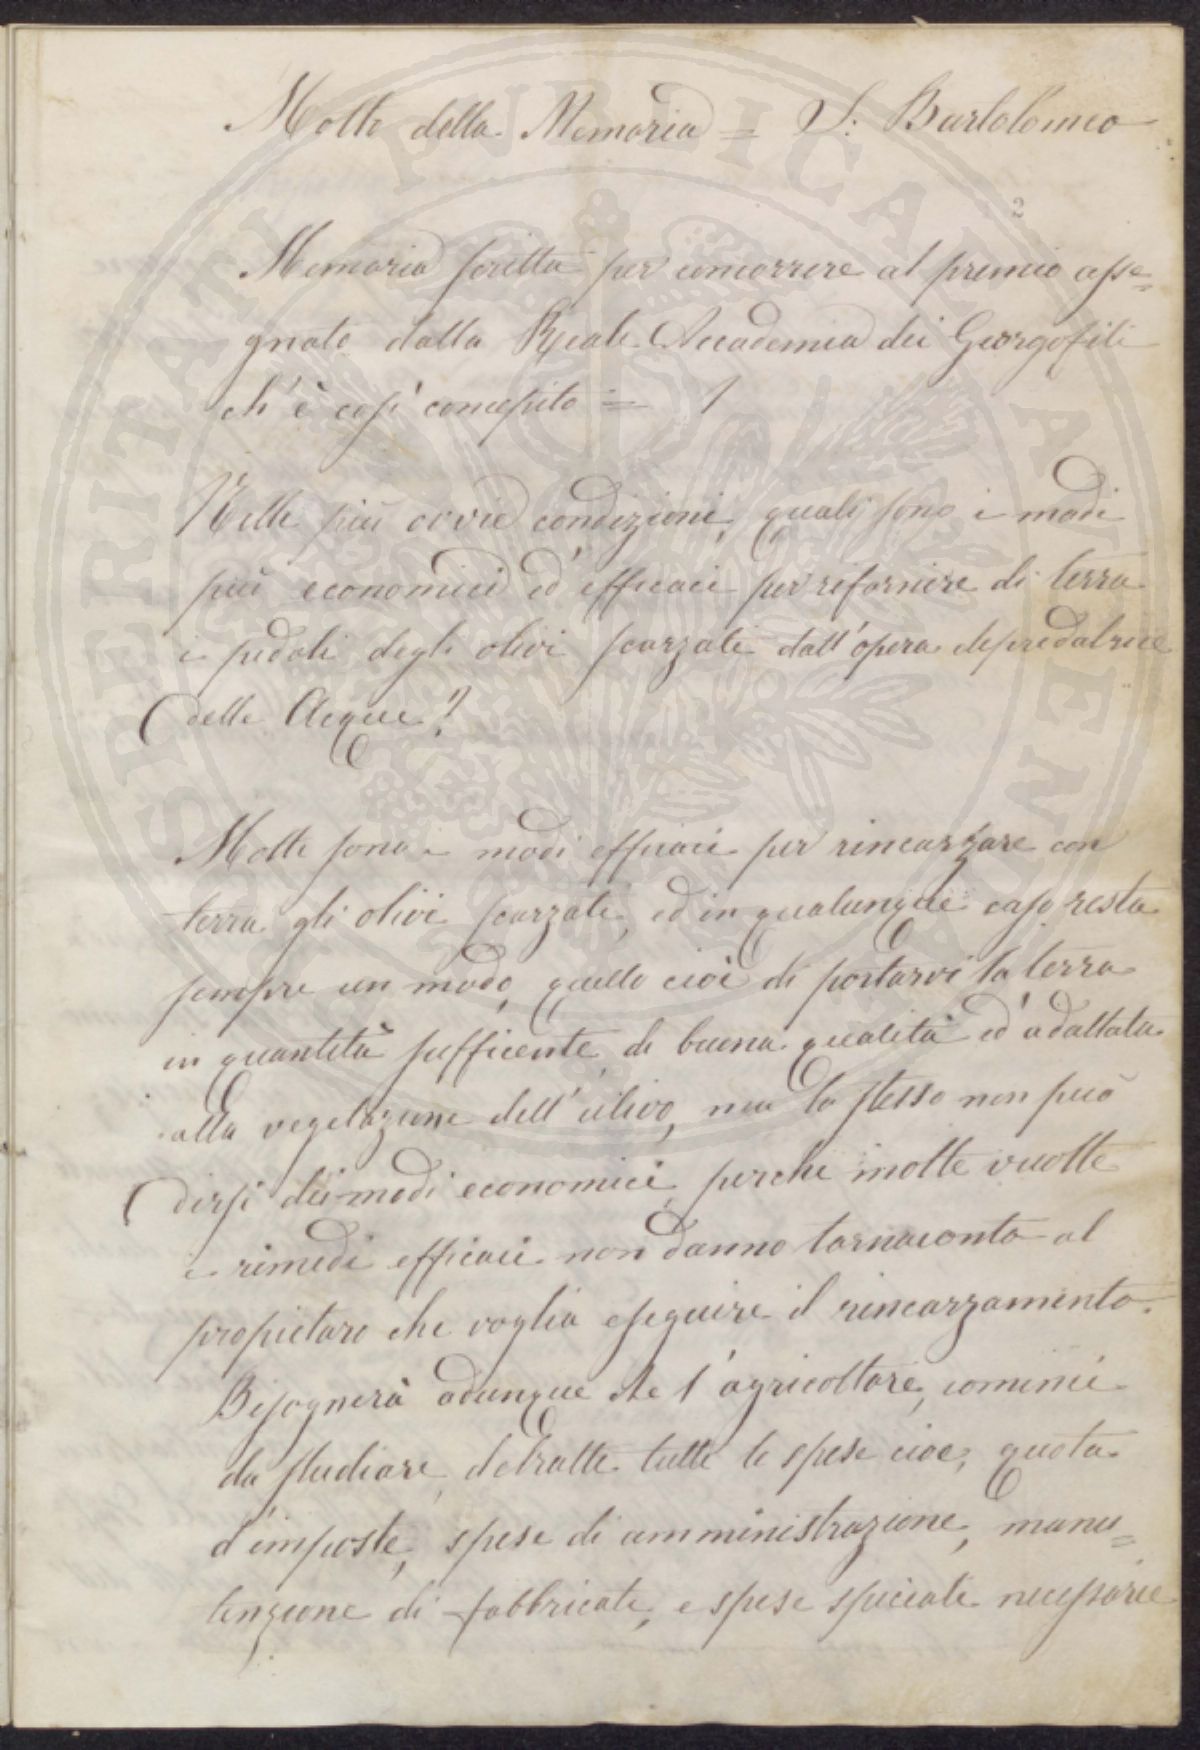 Motto della Memoria = S. Bartolomeo
2
Memoria scritta per concorrere al premio asse=
gnato dalla Reale Accademia dei Georgofili
ch'è così concepito =
Nelle più ovvie condizioni, quali sono i modi
più economici ed efficaci per rifornire di terra
i pedali degli olivi scarzati dall'opera depredatrice
delle Acque?
Molti sono i modi efficaci per rincarzare con
terra gli olivi scarzati, ed in qualunque caso resta
sempre un modo, quello cioè di portarvi la terra
in quantità sufficente, di buona qualità ed adattata
alla vegetazione dell'ulivo, ma lo stesso non può
dirsi dei modi economici, perche molte vuolte
i rimedi efficaci non danno tornaconto al
propietaro che voglia eseguire il rincarzamento.
Bisognerà adunque che l'agricoltore, cominci
da studiare, detratte tutte le spese cioe, quota
d'imposte, spese di amministrazione, manu=
tenzione di fabbricati, e spese speciali necessarie
PROSPERITATI PUBLICAE AUGENDAE